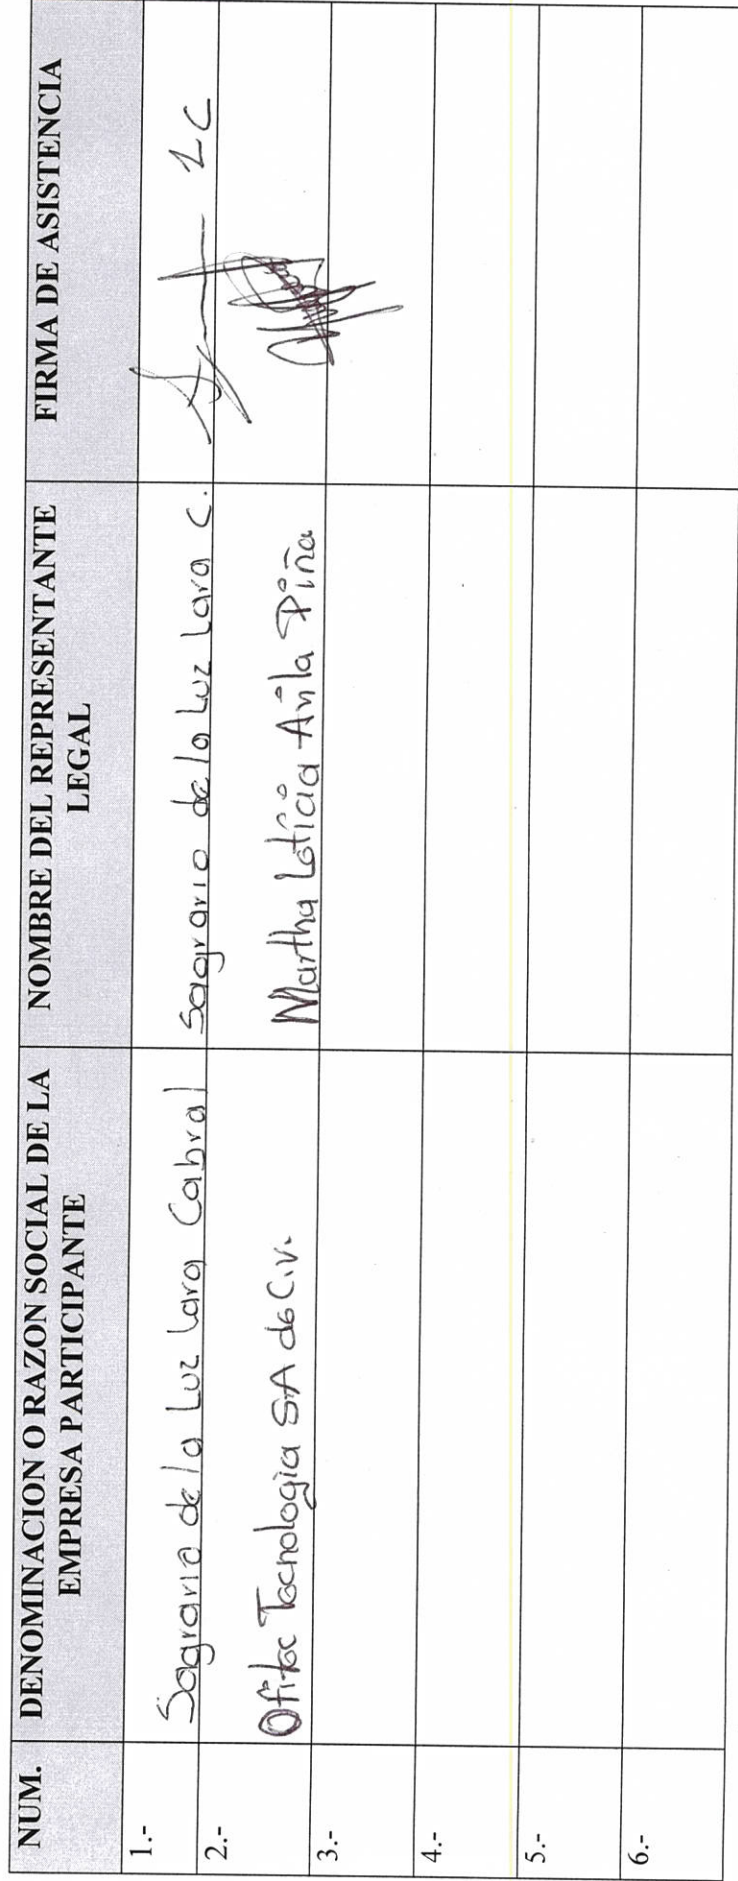 NUM.
DENOMINACION O RAZON SOCIAL DE LA
EMPRESA PARTICIPANTE
NOMBRE DEL REPRESENTANTE
LEGAL
FIRMA DE ASISTENCIA
1.- Sagrario de la Luz Lara Cabral Sagrario de la Luz Lara C.
2.- Ofitec Tecnologia SA de C.V. Martha Leticia Avila Piña
3.-
4.-
5.-
6.-